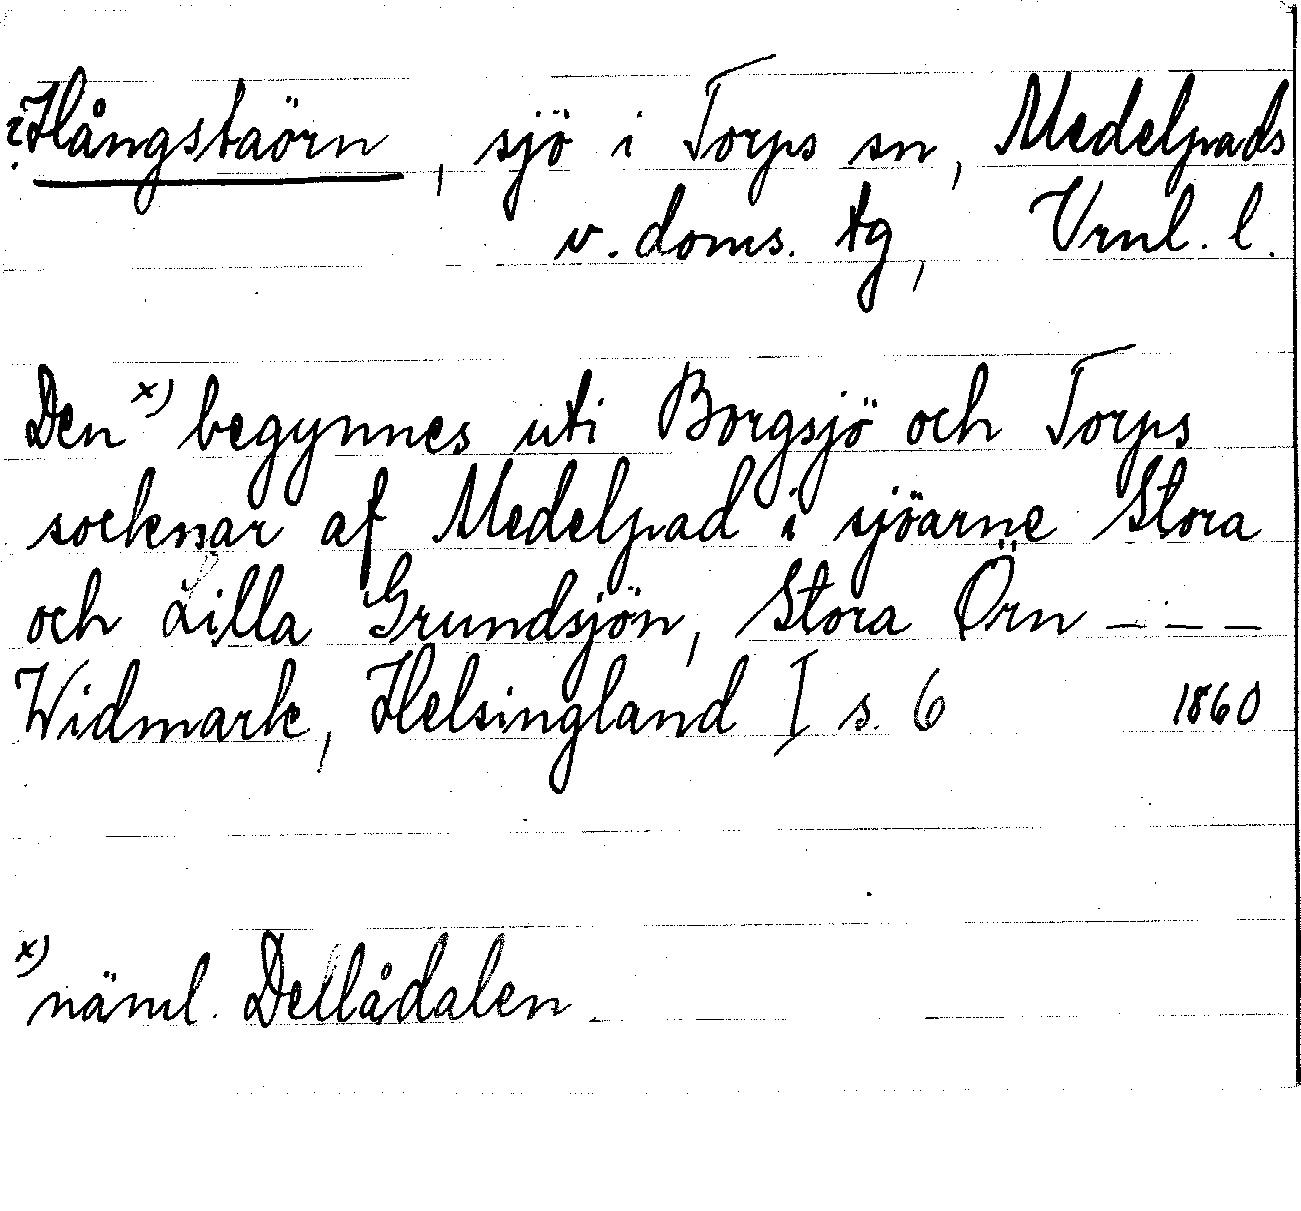 ?Hångstaörn, sjö i Torps sn, Medelpads
v. doms. tg, Vrnl. l.
Den x) begynnes uti Borgsjö och Torps
socknar af Medelpad i sjöarne Stora
och Lilla Grundsjön, Stora Örn - - -
Widmark, Helsingland I s. 6 1860
x) näml. Dellådalen